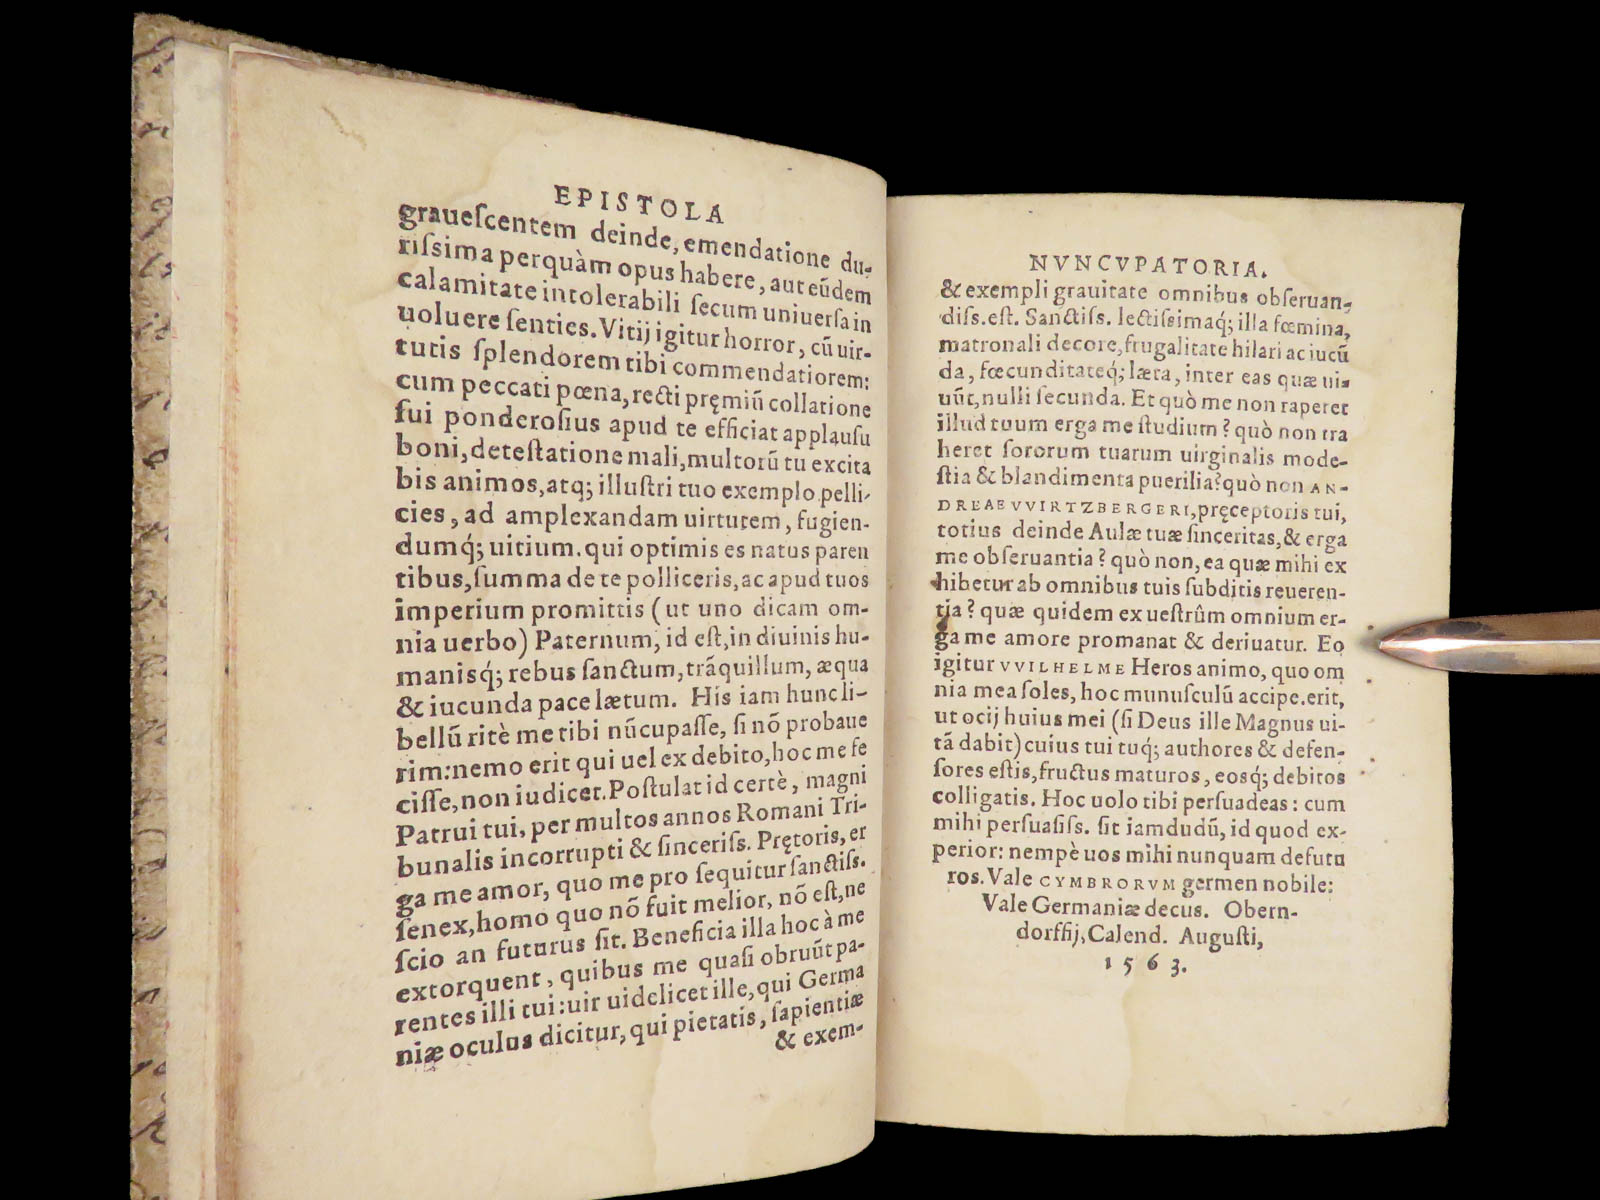 EPISTOLA
graueſcentem deinde, emendatione du-
riſsima perquàm opus habere, aut eũdem
calamitate intolerabili ſecum uniuerſa in
uoluere ſenties. Vitij igitur horror, cũ uir-
tutis ſplendorem tibi commendatiorem:
cum peccati pœna, recti pręmiũ collatione
ſui ponderoſius apud te efficiat applauſu
boni, deteſtatione mali, multorũ tu excita
bis animos, atq; illuſtri tuo exemplo pelli-
cies, ad amplexandam uirtutem, fugien-
dumq́; uitium. qui optimis es natus paren
tibus, ſumma de te polliceris, ac apud tuos
imperium promittis (ut uno dicam om-
nia uerbo) Paternum, id eſt, in diuinis hu-
manisq́; rebus ſanctum, trãquillum, æqua
& iucunda pace lætum. His iam hunc li-
bellũ ritè me tibi nũcupaſſe, ſi nõ probaue
rim: nemo erit qui uel ex debito, hoc me fe
ciſſe, non iudicet. Poſtulat id certè, magni
Patrui tui, per multos annos Romani Tri-
bunalis incorrupti & ſinceriſs. Prętoris, er
ga me amor, quo me pro ſequitur ſanctiſs.
ſenex, homo quo nõ fuit melior, nõ eſt, ne
ſcio an futurus ſit. Beneficia illa hoc à me
extorquent, quibus me quaſi obruũt pa-
rentes illi tui: uir uidelicet ille, qui Germa
niæ oculus dicitur, qui pietatis, ſapientiæ
& exem-
NVNCVPATORIA.
& exempli grauitate omnibus obſeruan-
diſs. eſt. Sanctiſs. lectiſsimaq́; illa fœmina,
matronali decore, frugalitate hilari ac iucũ
da, fœcunditateq́; læta, inter eas quæ ui-
uũt, nulli ſecunda. Et quò me non raperet
illud tuum erga me ſtudium? quò non tra
heret ſororum tuarum uirginalis mode-
ſtia & blandimenta puerilia? quò non AN-
DREAE VVIRTZBERGERI, pręceptoris tui,
totius deinde Aulæ tuæ ſinceritas, & erga
me obſeruantia? quò non, ea quæ mihi ex
hibetur ab omnibus tuis ſubditis reueren-
tia? quæ quidem ex ueſtrûm omnium er-
ga me amore promanat & deriuatur. Eo
igitur VVILHELME Heros animo, quo om
nia mea ſoles, hoc munuſculũ accipe. erit,
ut ocij huius mei (ſi Deus ille Magnus ui-
tã dabit) cuius tui tuq́; authores & defen-
ſores eſtis, fructus maturos, eosq́; debitos
colligatis. Hoc uolo tibi perſuadeas: cum
mihi perſuaſiſs. ſit iamdudũ, id quod ex-
perior: nempè uos mihi nunquam defutu
ros. Vale CYMBRORVM germen nobile:
Vale Germaniæ decus. Obern-
dorffij, Calend. Auguſti,
1563.